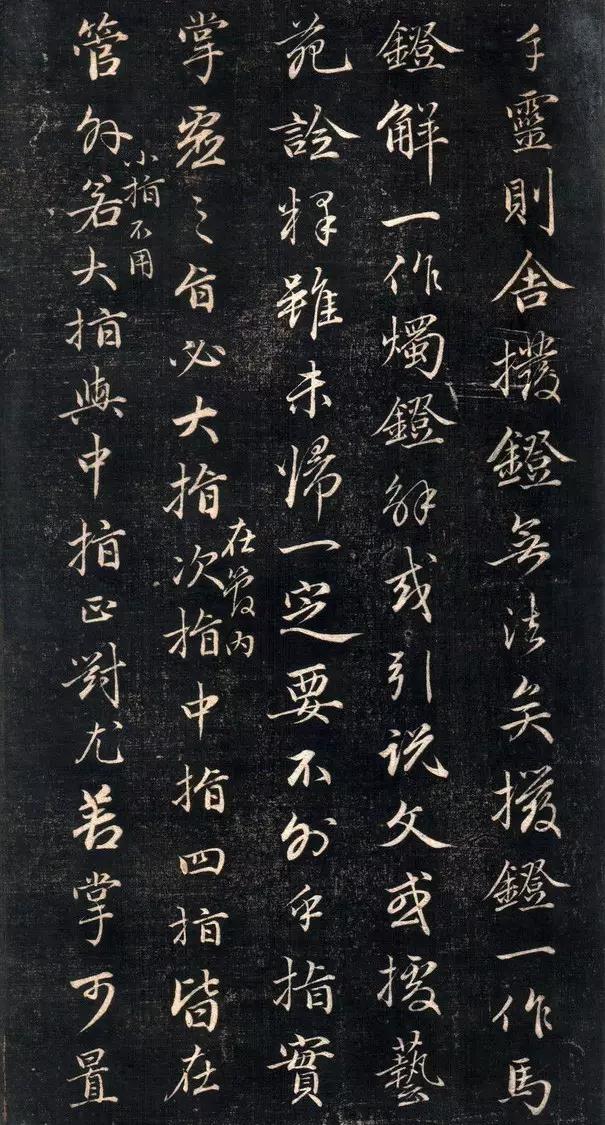 手靈則舍撥鐙無法矣撥鐙一作馬
鐙解一作燭鐙解或引説文或援藝
苑詮釋雖未歸一定要不外乎指實
掌虛之旨必大指次指在管内中指四指皆在
管外小指不用若大指與中指正對尤善掌可置